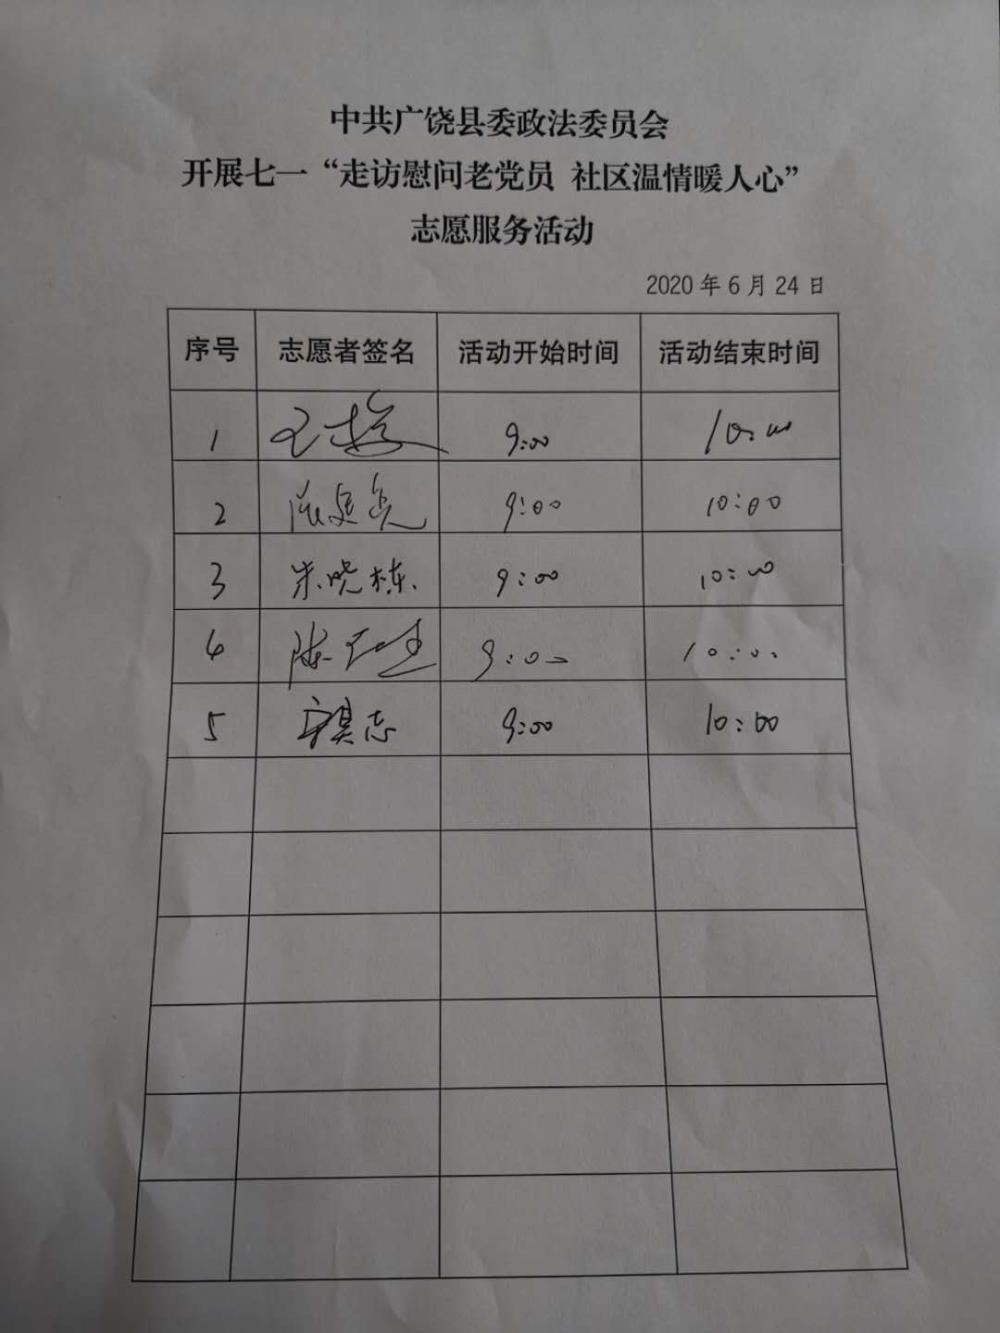 中共广饶县委政法委员会
开展七一“走访慰问老党员 社区温情暖人心”
志愿服务活动
2020年6月24日
序号 志愿者签名 活动开始时间 活动结束时间
1 9:00 10:00
2 9:00 10:00
3 朱晓栋 9:00 10:00
4 9:00 10:00
5 9:00 10:00